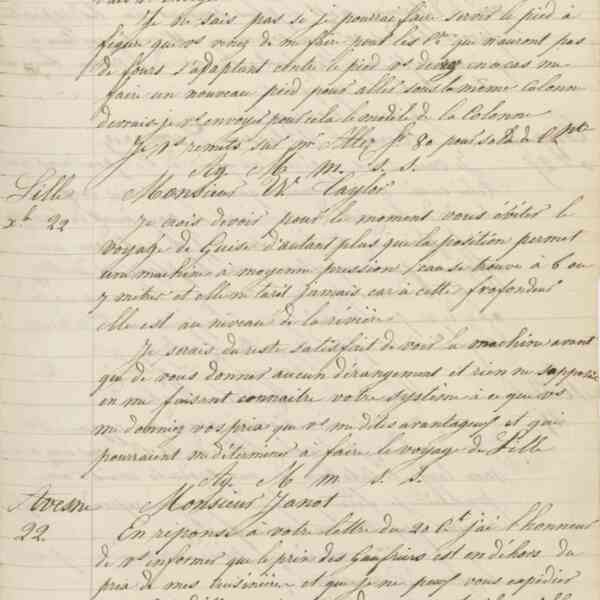 Je ne sais pas si je pourrai faire servir le pied à
figure que vs venez de me faire pour les Prs qui n'auront pas
de fours s'adaptant entre le pied vs devez en ce cas me
faire un nouveau pied pour aller sous la même Colonne
devrais je vs envoyer pour cela le modèle de la Colonne
Je vs remets sur Mr Allez fr 80 pour solde de Cpte
Ag. M m. s. s.
Lille Monsieur W. Taylor
xb 22 Je crois devoir pour le moment vous éviter le
voyage de Guise d'autant plus que la position permet
une machine à moyenne pression, l'eau se trouve à 6 ou
7 mètres et elle ne tarit jamais car à cette profondeur
elle est au niveau de la rivière
Je serais du reste satisfait de voir la machine avant
que de vous donner aucun dérangement et rien ne s'oppose
en me faisant connaître votre système à ce que vs
me donniez vos prix que vs me dites avantageux et qui
pourraient me déterminer à faire le voyage de Lille
Ag. M m. s. s.
Avesnes Monsieur Janot
22 En réponse à votre lettre du 20 Ct j'ai l'honneur
de vs informer que le prix des Gaufriers est en dehors du
prix de mes cuisinières et que je ne peux vous expédier